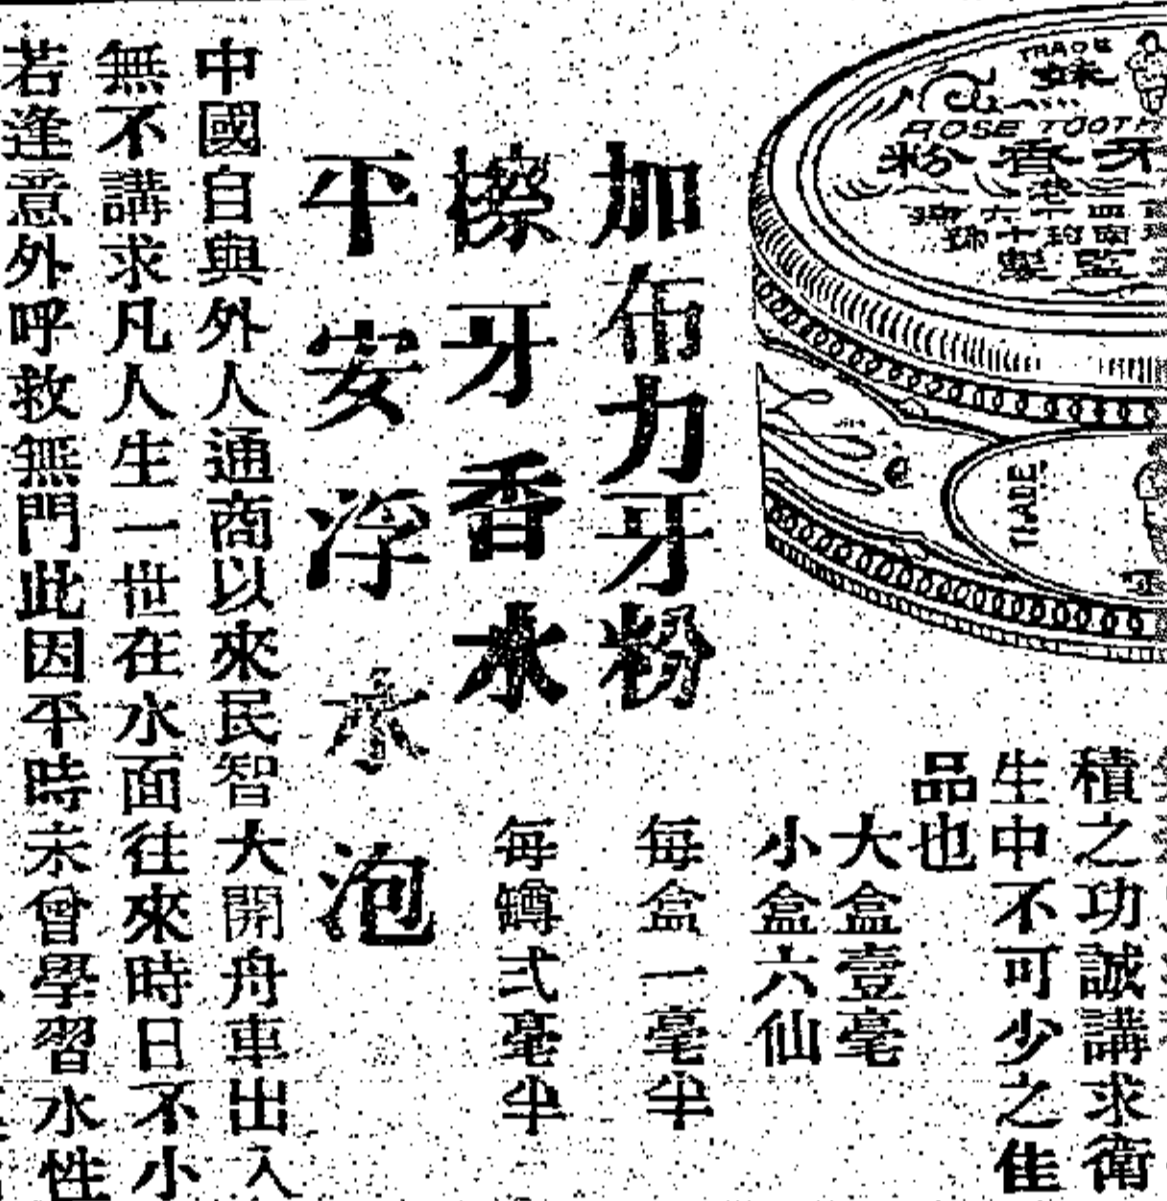 TRADE
ROSE TOOTH
牙香粉
監製
TRADE
積之功誠講求衛
生中不可少之佳
品也
大盒壹毫
小盒六仙
加布力牙粉
每盒一毫半
擦牙香水
每罇弍毫半
平安浮水泡
中國自與外人通商以來民智大開舟車出入
無不講求凡人生一世在水面往來時日不小
若逢意外呼救無門此因平時未曾學習水性